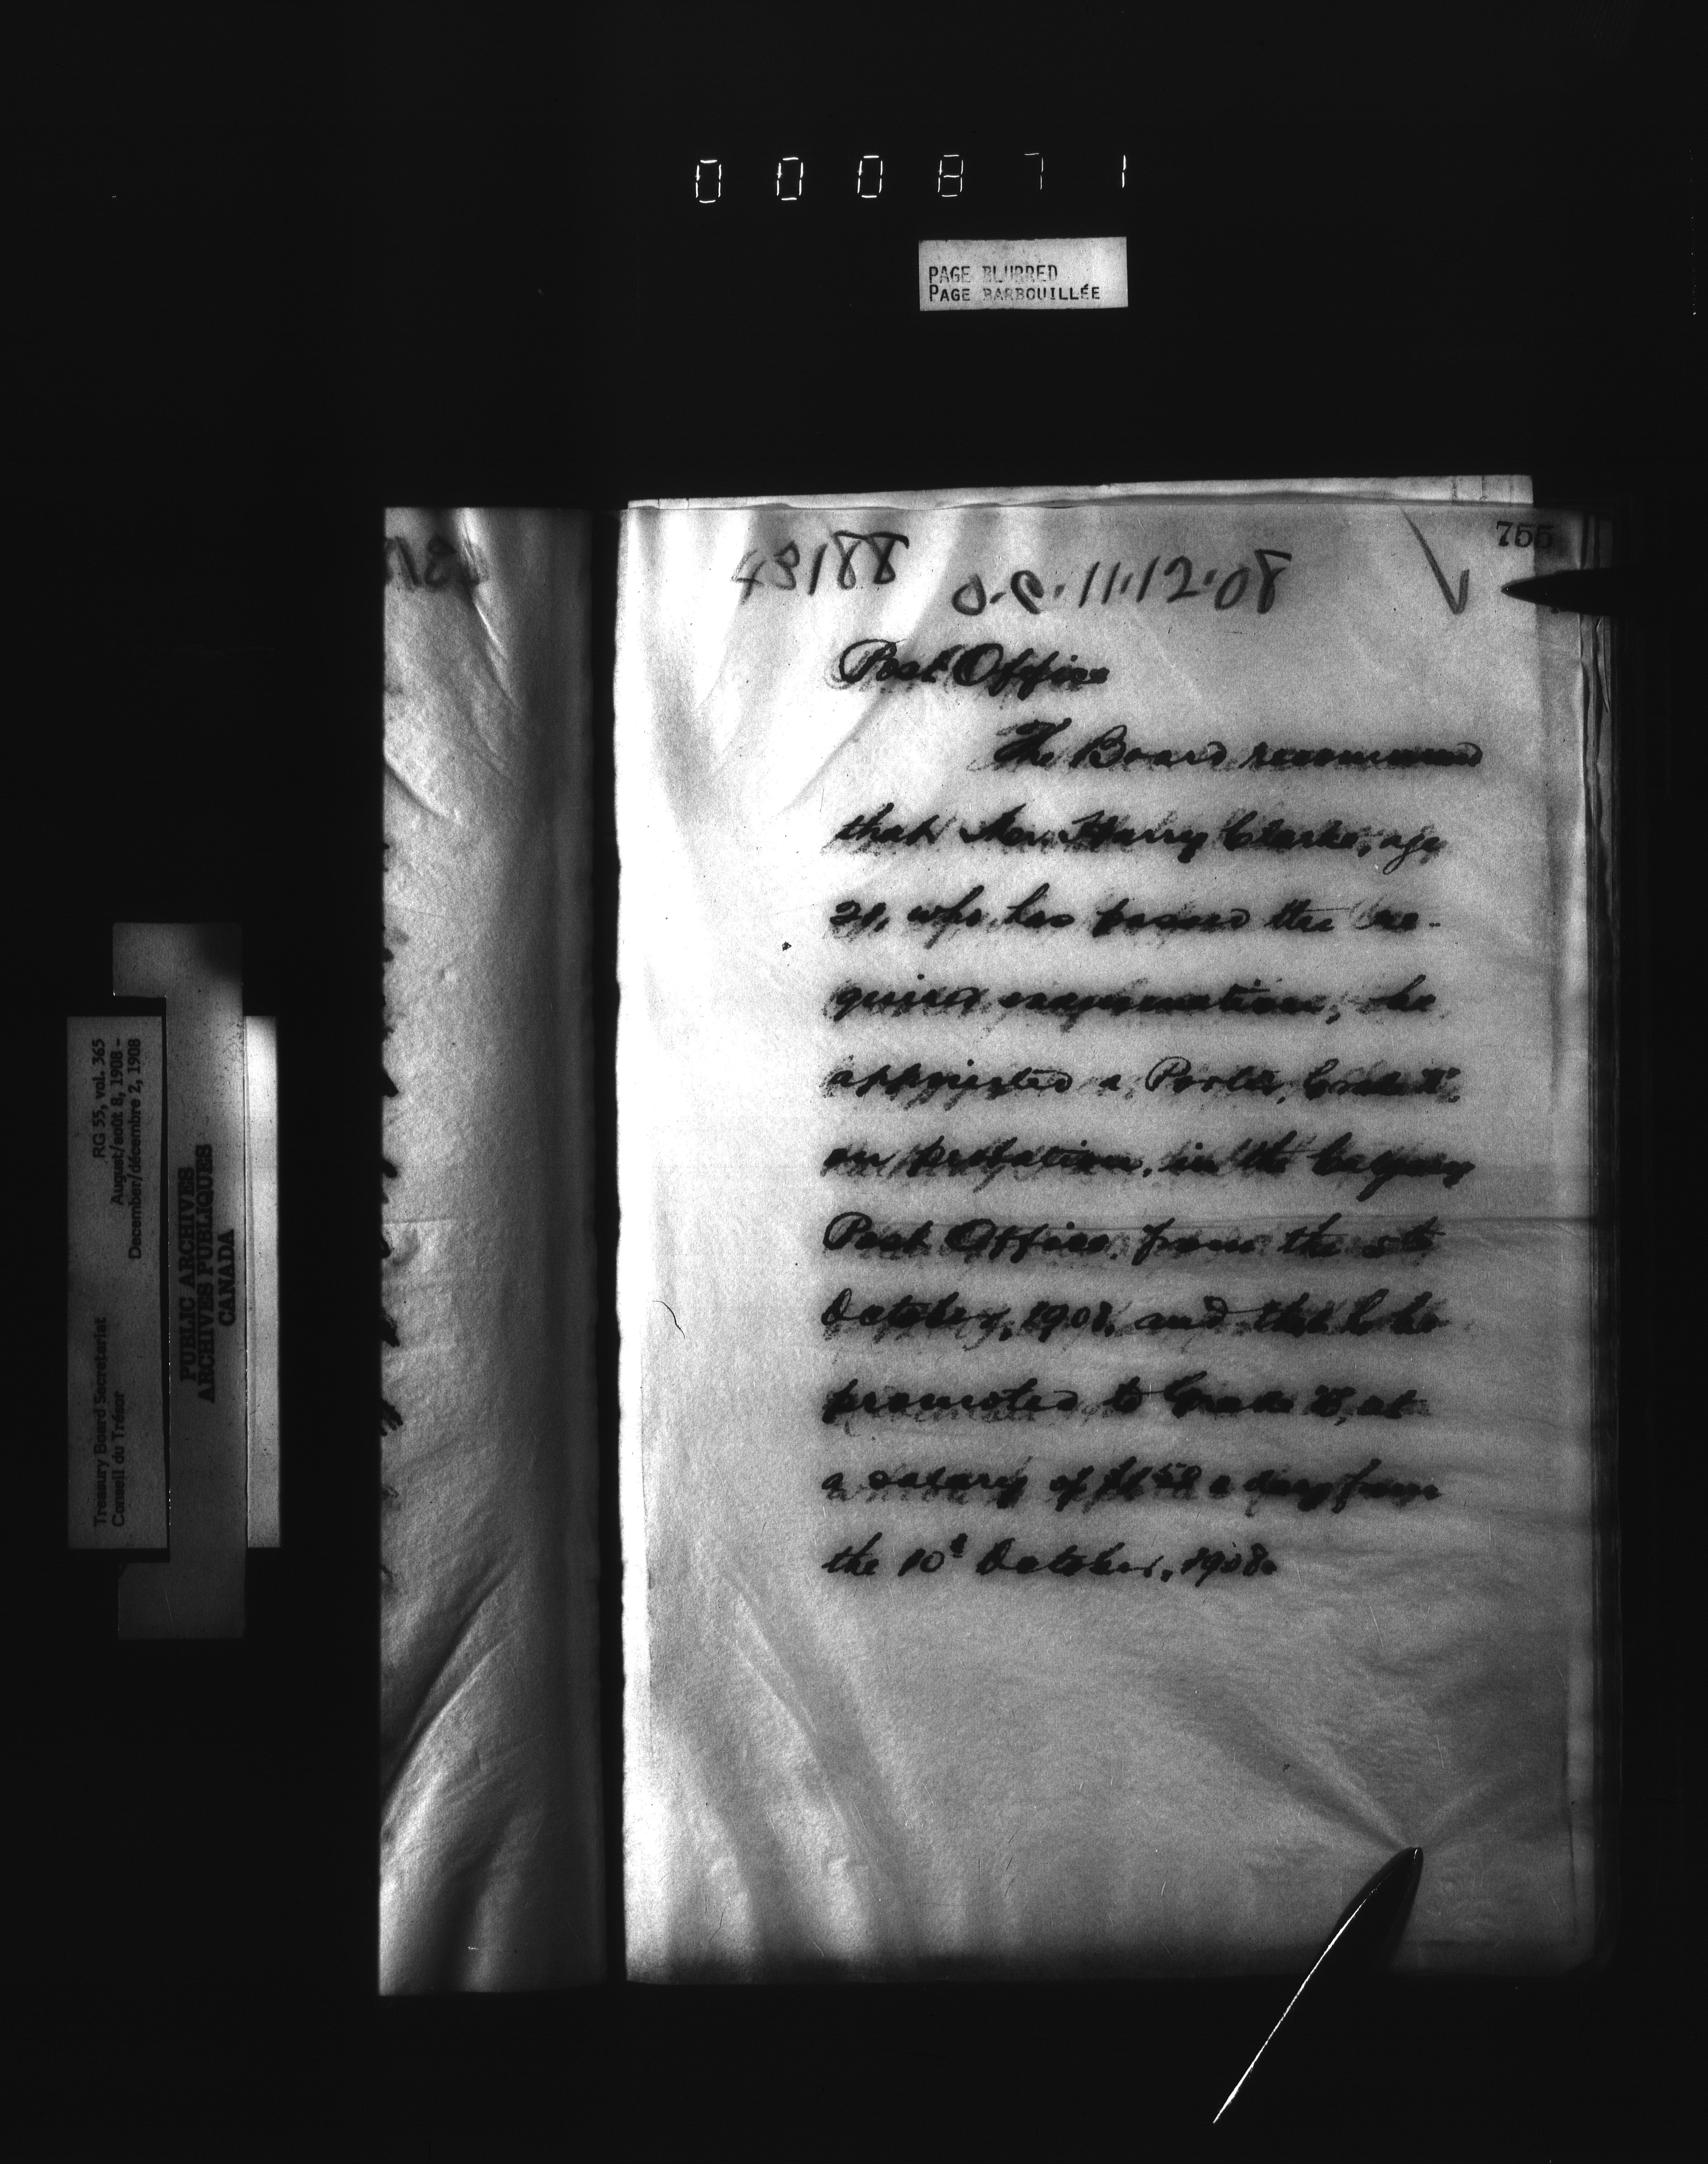 000871
PAGE BLURRED
PAGE BARBOUILLÉE
755
43188
O.C. 11.12.08
Post Office
The Board recommend
that Mr. Harry Clarke, age
21, who has passed the re-
quired examination, be
appointed a Porter, Grade A,
on probation, in the Calgary
Post Office, from the
October, 1908, and that he be
promoted to Grade B, at
a salary of a day from
the 10th October, 1908.
RG 55, vol. 365
August/août 8, 1908 –
December/décembre 2, 1908
Treasury Board Secretariat
Conseil du Trésor
PUBLIC ARCHIVES
ARCHIVES PUBLIQUES
CANADA